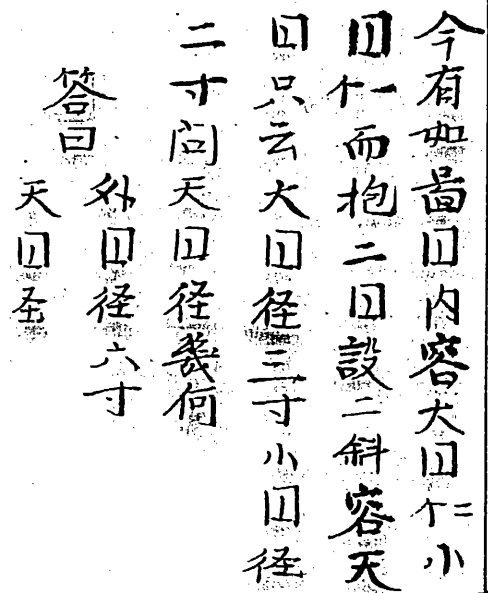 今有如啚円内容大円个二小
円个一而抱二円設二斜容天
円只云大円径三寸小円径
二寸問天円径幾何
答曰
外円径六寸
天円圣